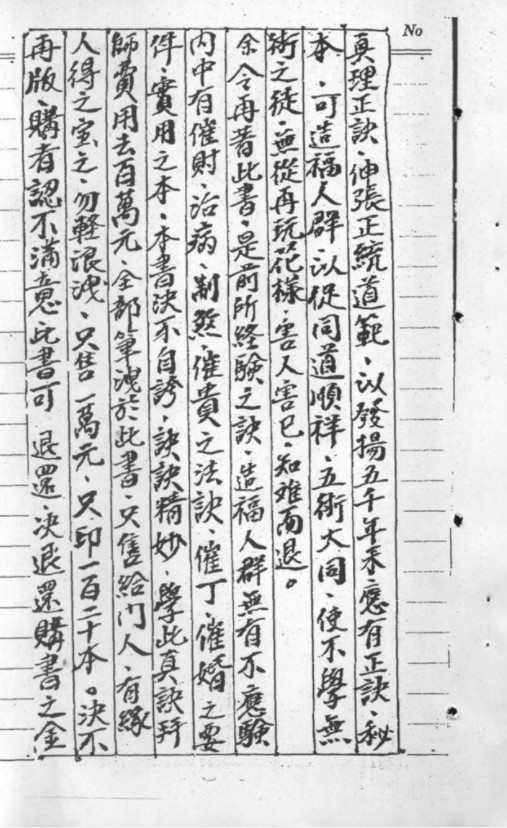 No
真理正訣、伸張正統道範、以發揚五千年來應有正訣、秘
本、可造福人群以促同道順祥、五術大同、使不學無
術之徒、無從再玩花樣、害人害己、知难而退。
余今再著此書、是前所経驗之訣、造福人群無有不應驗
內中有催財、治病、制煞、催貴之法訣、催丁、催婚之要
件、實用之本、本書決不自誇、訣訣精妙、學此真訣拜
師費用去百萬元、全部筆洩於此書、只售給门人、有緣
人得之宝之、勿輕浪洩、只售一萬元、只印一百二十本。决不
再版、購者認不滿意此書可退還、决退還購書之金